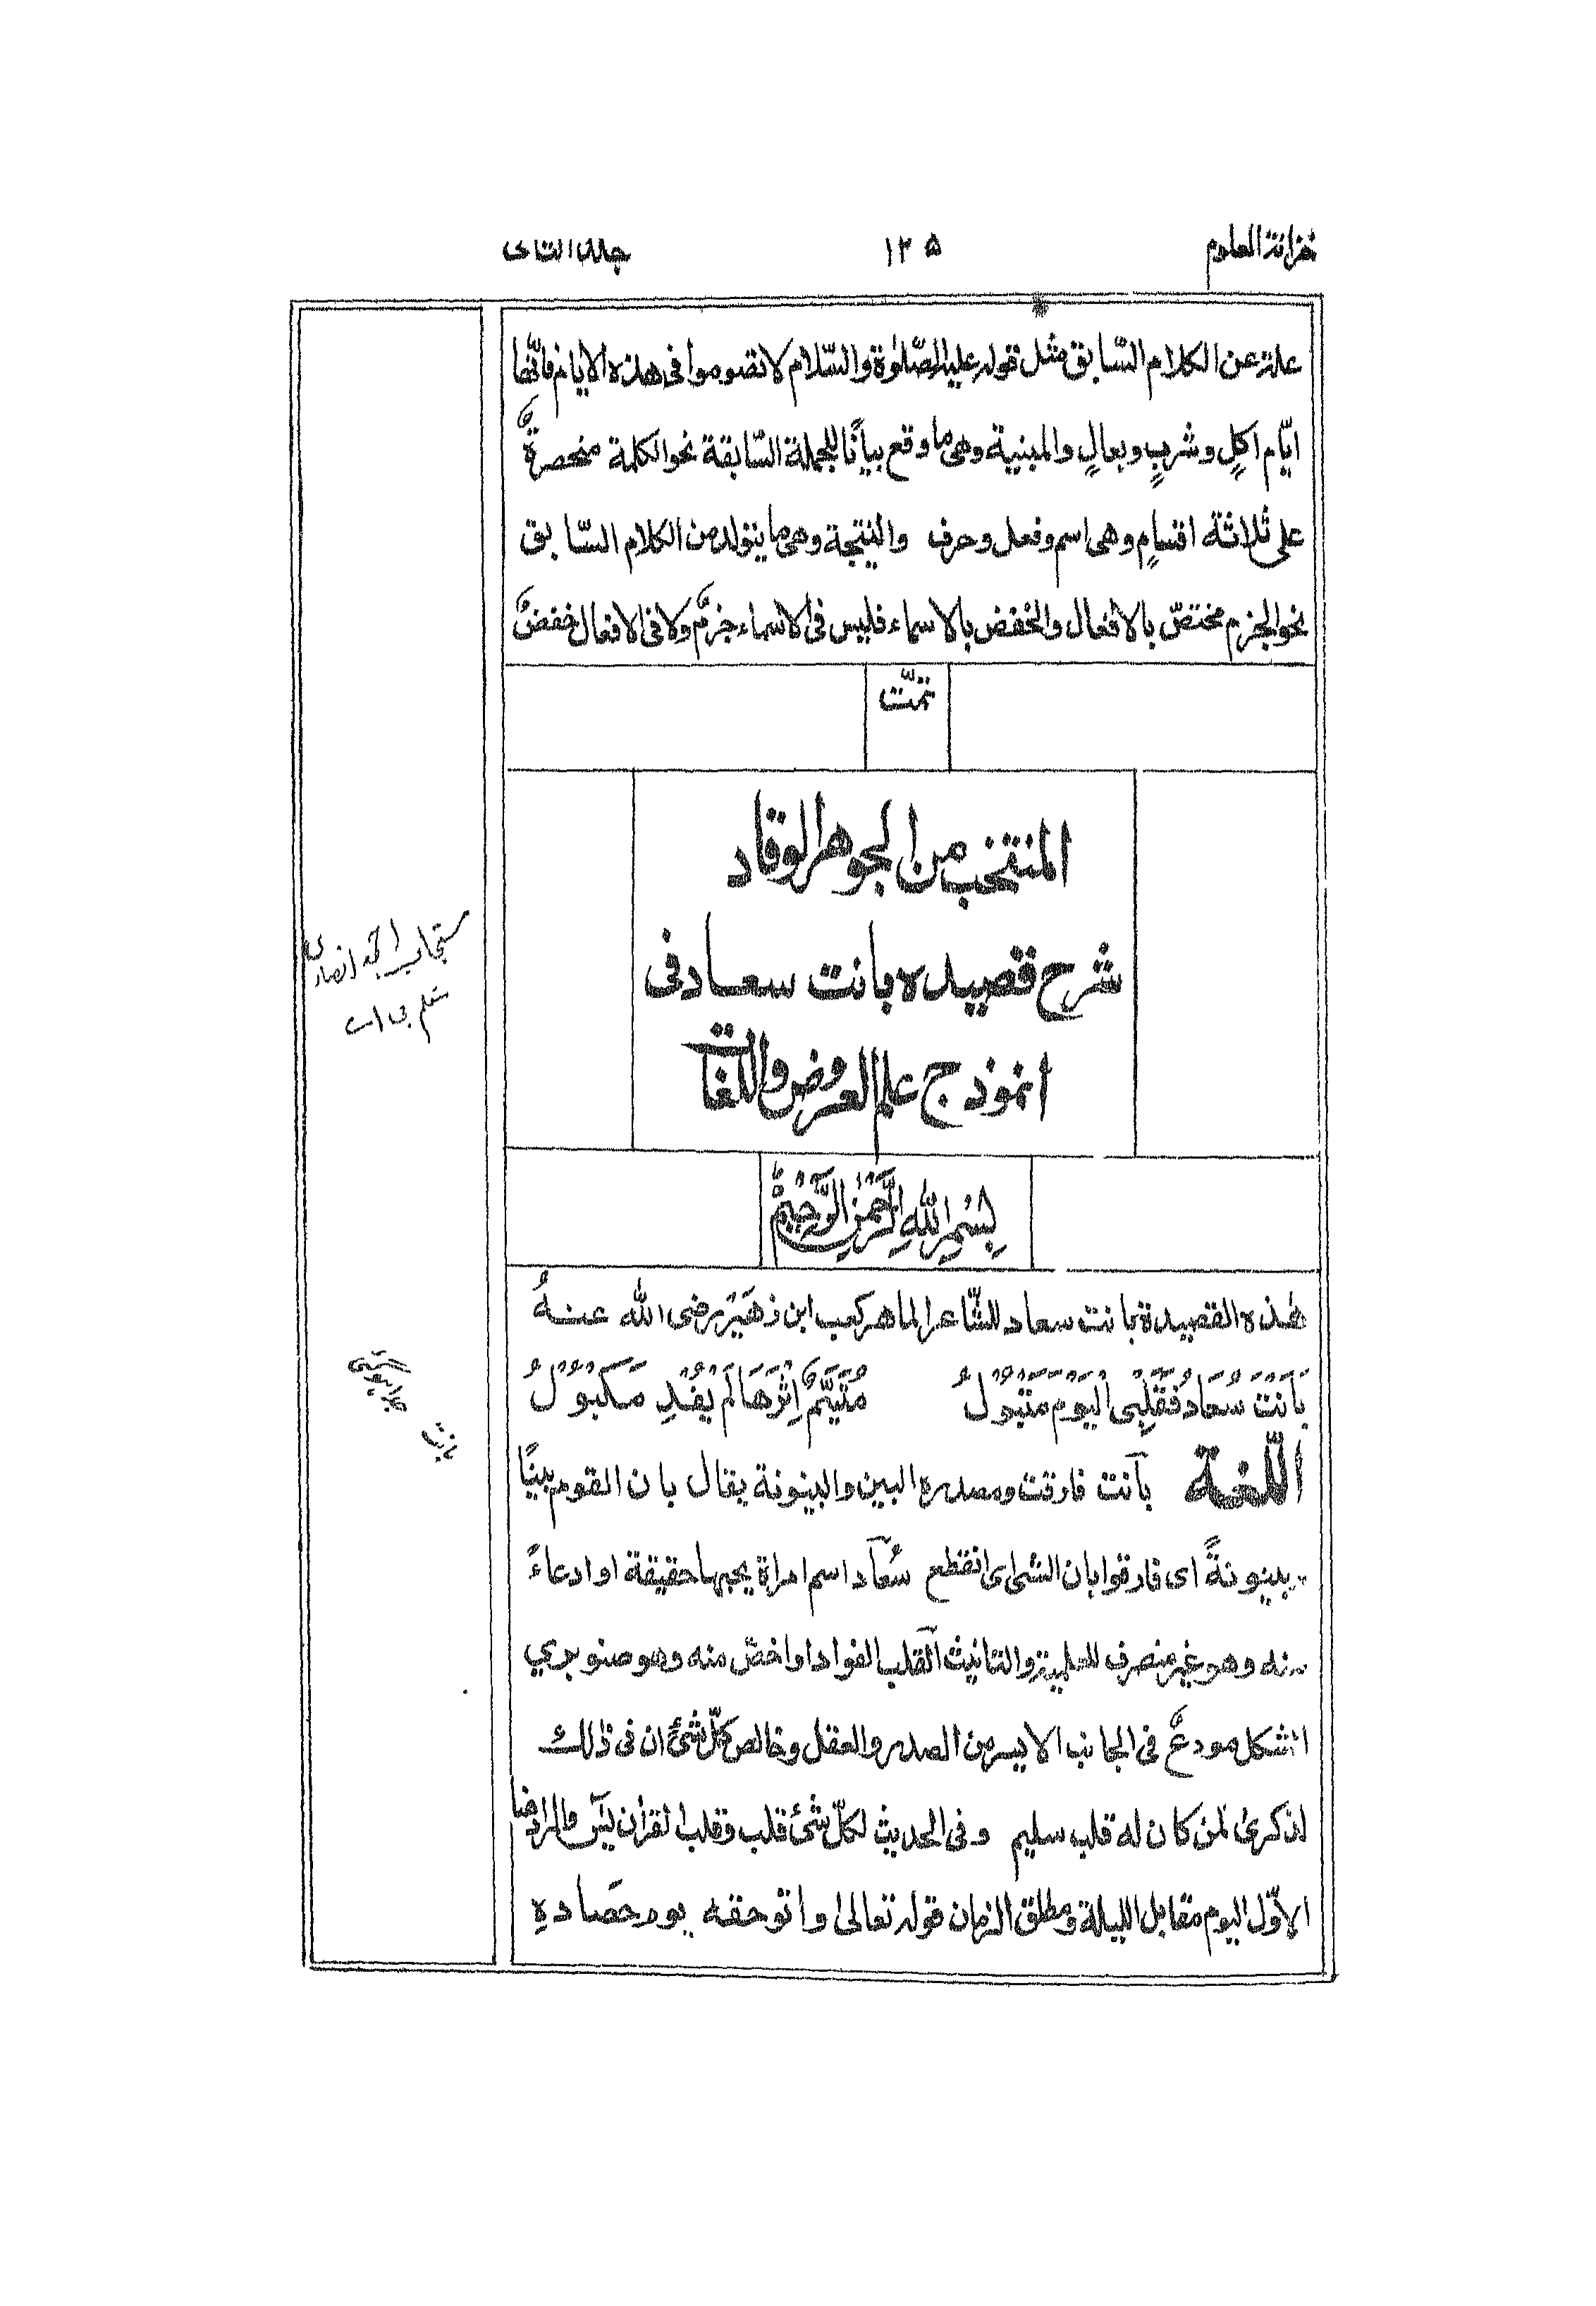 خزانة العلوم ١٢٥ جلد الثانی
علة عن الكلام السّابق مثل قوله عليه الصّلوٰة والسّلام لا تصوموا فى هذه الايام فانّها
ايّام اكلٍ وشربٍ وبعالٍ والمبنية وهى ما وقع بيانًا للجملة السّابقة نحو الكلمة منحصرةٌ
على ثلاثة اقسامٍ وهى اسم وفعل وحرف والنتيجة وهى ما يتولد من الكلام السّابق
نحو الجزم مختصّ بالافعال والخفض بالاسماء فليس فى الاسماء جزمٌ ولا فى الافعال خفضٌ
تمّت
المنتخب من الجوهر الوقاد
شرح قصيده بانت سعاد فى
انموذج علم العروض واللغات
بِسْمِ اللهِ الرَّحْمٰنِ الرَّحِيْمِ
هٰذه القصيدة بانت سعاد للشّاعر الماهر كعب ابن زهَيْر رضى الله عنهُ
بَانَتْ سُعَادُ فَقَلْبِى الْيَوْمَ مَتْبُوْلُ مُتَيَّمٌ اِثْرَهَا لَمْ يُفْدِ مَكْبُوْلُ
اللّغة بآنت فارقت ومصدره البين والبينونة يقال بان القوم بينًا
وبينونةً اى فارقوا بان الشئ اى انقطع سُعآد اسم امراة يحبها حقيقة او ادعاءً
منه وهو غير منصرف للعلمية والتانيث آلقلب الفواد او اخصّ منه وهو صنوبرى
الشكل مودعٌ فى الجانب الايسر من الصدر والعقل وخالص كلّ شئ ان فى ذٰلك
لذكرىٰ لمن كان له قلب سليم وفى الحديث لكلّ شئ قلب وقلب القرآن يٰسٓ والمراد هنا
الاوّل اليوم مقابل الليلة ومطلق الزمان قوله تعالىٰ واتو حقه يوم حصَادهِ